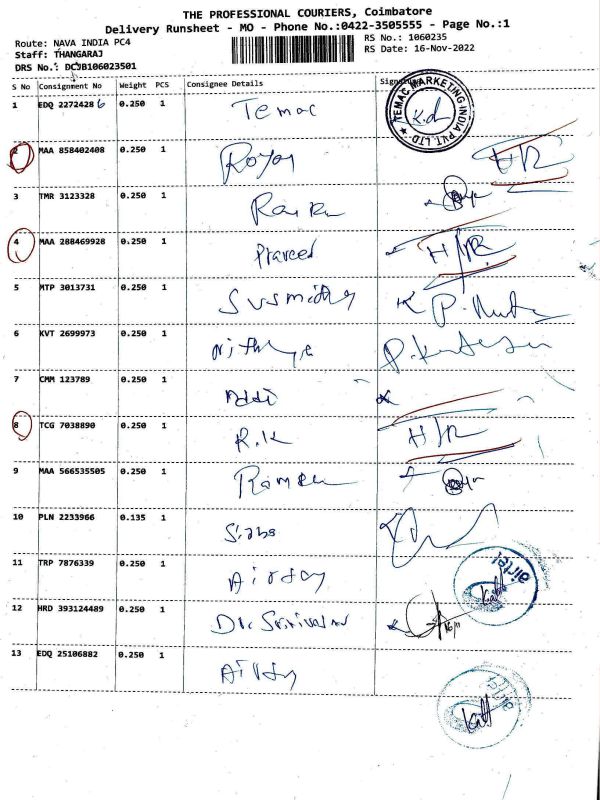 THE PROFESSIONAL COURIERS, Coimbatore
Delivery Runsheet - MO - Phone No.:0422-3505555 - Page No.:1
Route: NAVA INDIA PC4
RS No.: 1060235
Staff: THANGARAJ
RS Date: 16-Nov-2022
DRS No.: DCJB106023501
S No Consignment No Weight PCS Consignee Details
1 EDQ 2272428 6 0.250 1 Temac
TEMAC MARKETING INDIA PVT. LTD.
K.d
2 MAA 858402408 0.250 1 H/R
3 TMR 3123328 0.250 1
4 MAA 288469928 0.250 1 Praveen H/R
5 MTP 3013731 0.250 1 Susmithy
6 KVT 2699973 0.250 1
7 CMM 123789 0.250 1
8 TCG 7038890 0.250 1 R.K H/R
9 MAA 566535505 0.250 1
10 PLN 2233966 0.135 1
11 TRP 7876339 0.250 1
airtel
12 HRD 393124489 0.250 1 Dr. Srinivasan 16/11
13 EDQ 25106882 0.250 1
airtel